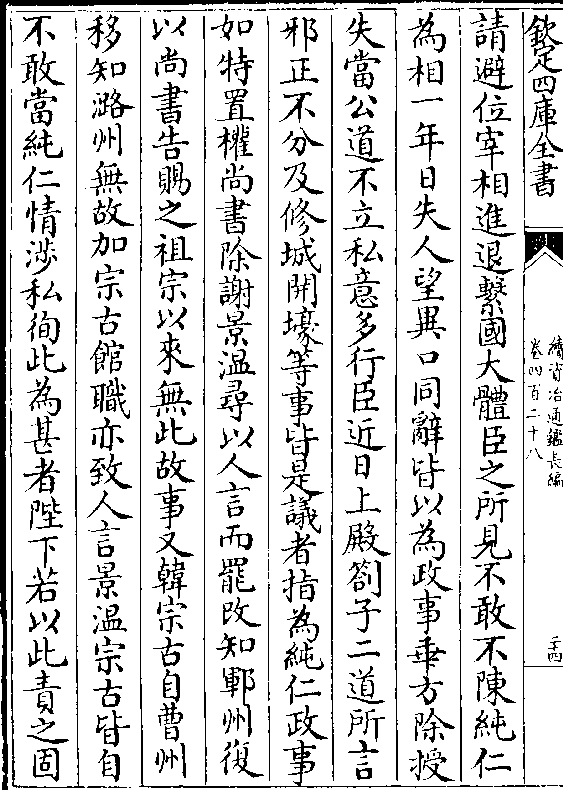 欽定四庫全書
續資治通鑑長編
卷四百二十八
二十四
請避位宰相進退繫國大體臣之所見不敢不陳純仁
為相一年日失人望異口同辭皆以為政事乖方除授
失當公道不立私意多行臣近日上殿劄子二道所言
邪正不分及修城開壕等事皆是議者指為純仁政事
如特置權尚書除謝景溫尋以人言而罷改知鄆州復
以尚書告賜之祖宗以來無此故事又韓宗古自曹州
移知潞州無故加宗古館職亦致人言景溫宗古皆自
不敢當純仁情涉私徇此為甚者陛下若以此責之固